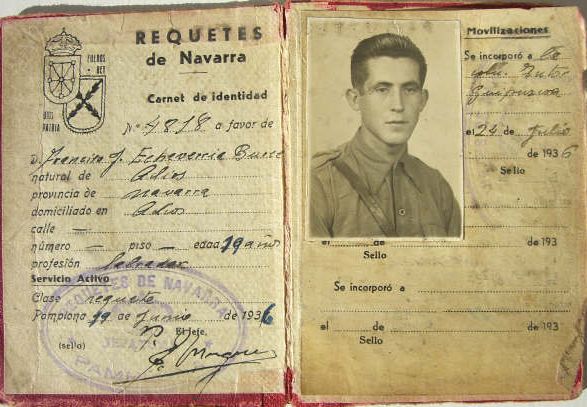 REQUETES
de Navarra
FUEROS
REY
DIOS
PATRIA
Carnet de identidad
Nº 4818 a favor de
D. Francisco J. Echeverria
natural de Adios
provincia de Navarra
domiciliado en Adios
calle —
número — piso — edad 19 años
profesión labrador
Servicio Activo
Clase requete
Pamplona 19 de Junio de 1936
(sello) El Jefe,
REQUETES DE NAVARRA
Movilizaciones
Se incorporó a
el 24 de Julio
de 1936
Sello
el de de 193
Sello
Se incorporó a
el de de 193
Sello